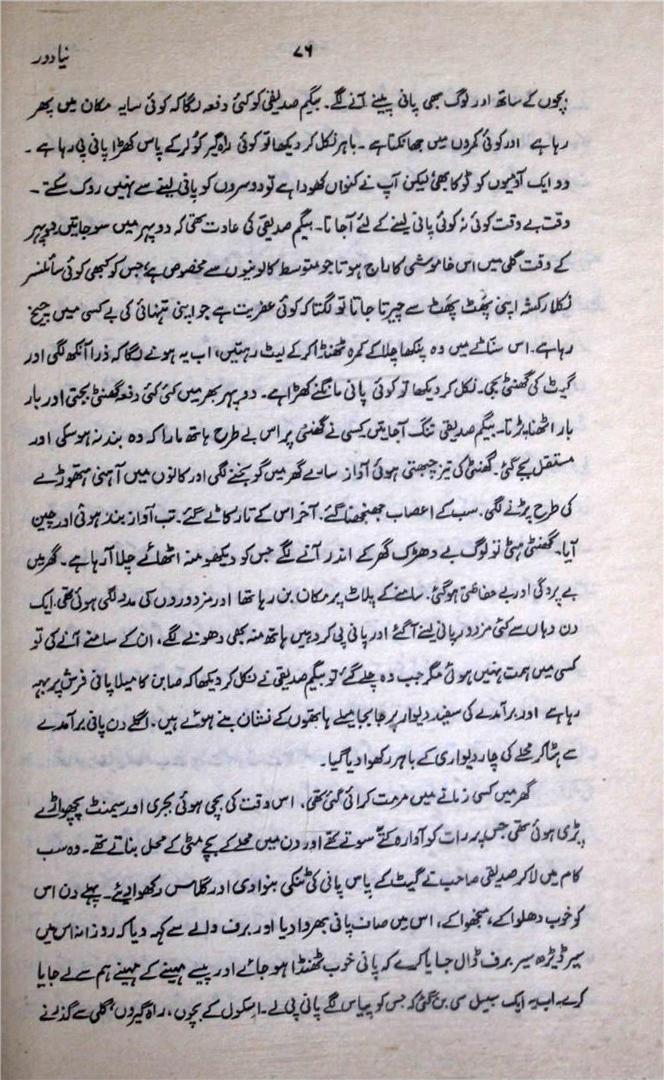 نیا دور
۷۶
بچوں کے ساتھ اور لوگ بھی پانی پینے آنے لگے۔ بیگم صدیقی کو کئی دفعہ لگا کہ کوئی سایہ مکان میں پھر
رہا ہے اور کوئی کمروں میں جھانکتا ہے۔ باہر نکل کر دیکھا تو کوئی راہ گیر کولر کے پاس کھڑا پانی پی رہا ہے۔
دو ایک آدمیوں کو ٹوکا بھی لیکن آپ نے کنواں کھودا ہے تو دوسروں کو پانی لینے سے نہیں روک سکتے۔
وقت بے وقت کوئی نہ کوئی پانی لینے کے لئے آ جاتا۔ بیگم صدیقی کی عادت تھی کہ دوپہر میں سو جاتیں، دوپہر
کے وقت گلی میں اس خاموشی کا راج ہوتا جو متوسط کالونیوں سے مخصوص ہے، جس کو کبھی کوئی سائلنسر
نکلا رکشہ اپنی پھٹ پھٹ سے چیرتا جاتا تو لگتا کہ کوئی عفریت ہے جو اپنی تنہائی کی بے کسی میں چیخ
رہا ہے۔ اس سناٹے میں وہ پنکھا چلا کے کمرہ ٹھنڈا کر کے لیٹ رہتیں، اب یہ ہونے لگا کہ ذرا آنکھ لگی اور
گیٹ کی گھنٹی بجی۔ نکل کر دیکھا تو کوئی پانی مانگنے کھڑا ہے۔ دوپہر بھر میں کئی کئی دفعہ گھنٹی بجتی اور بار
بار اٹھنا پڑتا۔ بیگم صدیقی تنگ آ جاتیں کسی نے گھنٹی پر اس بے طرح ہاتھ مارا کہ وہ بند نہ ہو سکی اور
مستقل بجے گئی۔ گھنٹی کی تیز چبھتی ہوئی آواز سارے گھر میں گونجنے لگی اور کانوں میں آہنی ہتھوڑے
کی طرح پڑنے لگی۔ سب کے اعصاب جھنجھنا گئے۔ آخر اس کے تار کاٹے گئے۔ تب آواز بند ہوئی اور چین
آیا۔ گھنٹی ہٹی تو لوگ بے دھڑک گھر کے اندر آنے لگے جس کو دیکھو منہ اٹھائے چلا آ رہا ہے۔ گھر میں
بے پردگی اور بے حفاظتی ہو گئی۔ سامنے کے پلاٹ پر مکان بن رہا تھا اور مزدوروں کی مدد لگی ہوئی تھی، ایک
دن وہاں سے کئی مزدور پانی لینے آ گئے اور پانی پی کر وہیں ہاتھ منہ بھی دھونے لگے، ان کے سامنے آنے کی تو
کسی میں ہمت نہیں ہوئی مگر جب وہ چلے گئے تو بیگم صدیقی نے نکل کر دیکھا کہ صابن کا میلا پانی فرش پر بہہ
رہا ہے اور برآمدے کی سفید دیوار پر جا بجا میلے ہاتھوں کے نشان بنے ہوئے ہیں۔ اگلے دن پانی برآمدے
سے ہٹا کر محلے کی چار دیواری کے باہر رکھوا دیا گیا۔
گھر میں کسی زمانے میں مرمت کرائی گئی تھی، اس وقت کی بچی ہوئی بجری اور سیمنٹ پچھواڑے
پڑی ہوئی تھی جس پر رات کو آوارہ کتے سوتے تھے اور دن میں محلے کے بچے مٹی کے محل بناتے تھے۔ وہ سب
کام میں لا کر صدیقی صاحب نے گیٹ کے پاس پانی کی ٹنکی بنوا دی اور گلاس رکھوا دیئے۔ پہلے دن اس
کو خوب دھلوا کے، منجھوا کے، اس میں صاف پانی بھروا دیا اور برف والے سے کہہ دیا کہ روزانہ اس میں
سیر ڈیڑھ سیر برف ڈال جایا کرے کہ پانی خوب ٹھنڈا ہو جائے اور پیسے مہینے کے مہینے ہم سے لے جایا
کرے۔ اب یہ ایک سبیل سی بن گئی کہ جس کو پیاس لگے پانی پی لے۔ اسکول کے بچوں، راہ گیروں، گلی سے گذرنے